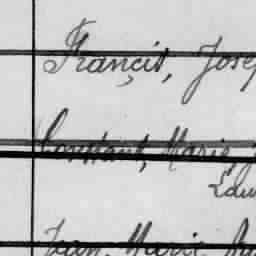 Francis, Jose
Constant, Marie
Edu
Jean Marie